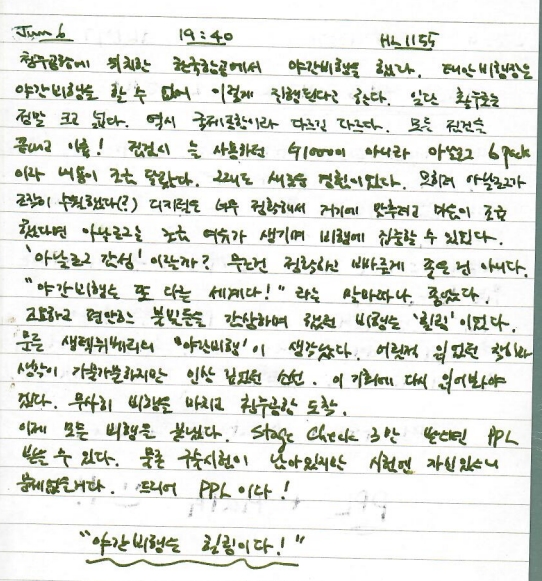 Jun 6 19:40 HL1155
청주공항에 위치한 한국항공에서 야간비행을 했다. 태안비행장은
야간비행을 할 수 없어 이렇게 진행된다고 한다. 일단 활주로는
정말 크고 넓다. 역시 국제공항이라 다르긴 다르다. 모든 점검을
끝내고 이륙! 점검시 늘 사용하던 G1000이 아니라 아날로그 6pack
이라 내용이 조금 달랐다. 그래도 새로운 경험이었다. 오히려 아날로그가
조작이 수월했다(?) 디지털은 너무 정확해서 거기에 맞추려고 마음이 조급
했다면 아날로그는 조금 여유가 생기며 비행에 집중할 수 있었다.
'아날로그 감성' 이랄까? 무조건 정확하고 빠른게 좋은건 아니다.
"야간비행은 또 다른 세계다!" 라는 말마따나, 좋았다.
고요하고 편안한 불빛들을 감상하며 했던 비행은 '힐링'이었다.
문득 생텍쥐베리의 '야간비행'이 생각났다. 어린적 읽었던 책이라
생각이 가물가물하지만 인상 깊었던 소설. 이 기회에 다시 읽어봐야
겠다. 무사히 비행을 마치고 청주공항 도착.
이제 모든 비행을 끝냈다. Stage Check 3만 받으면 PPL
받을 수 있다. 물론 구술시험이 남아있지만 시험엔 자신있으니
문제없을거다. 드디어 PPL 이다!
"야간비행은 힐링이다!"